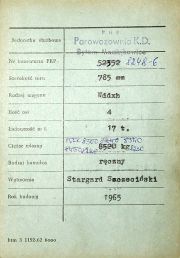 P K P
Jednostka służbowa Parowozownia K.D.
Bytom Maciejkowice
Nr inwentarza PKP: 52352 8248-6
Szerokość toru 785 mm
Rodzaj wagonu Wddxh
Ilość osi 4
Ładowność w t. 17 t.
Ciężar własny 8520 kg
Rodzaj hamulca ręczny
Wytwórnia Stargard Szczeciński
Rok budowy 1965